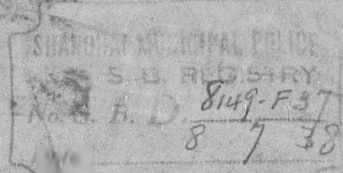 SHANGHAI MUNICIPAL POLICE
S. B. REGISTRY
No. S. B. D. 8149-F37
8 7 38